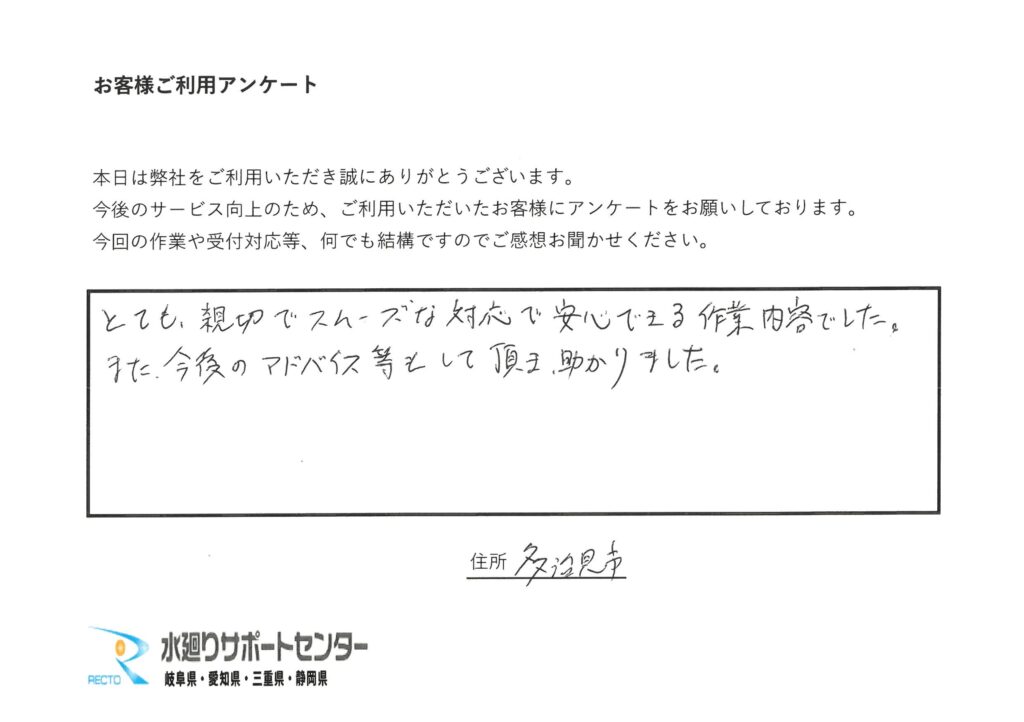 お客様ご利用アンケート
本日は弊社をご利用いただき誠にありがとうございます。
今後のサービス向上のため、ご利用いただいたお客様にアンケートをお願いしております。
今回の作業や受付対応等、何でも結構ですのでご感想お聞かせください。
とても、親切でスムーズな対応で安心できる作業内容でした。
また、今後のアドバイス等もして頂き、助かりました。
住所 多治見市
RECTO 水廻りサポートセンター
岐阜県・愛知県・三重県・静岡県